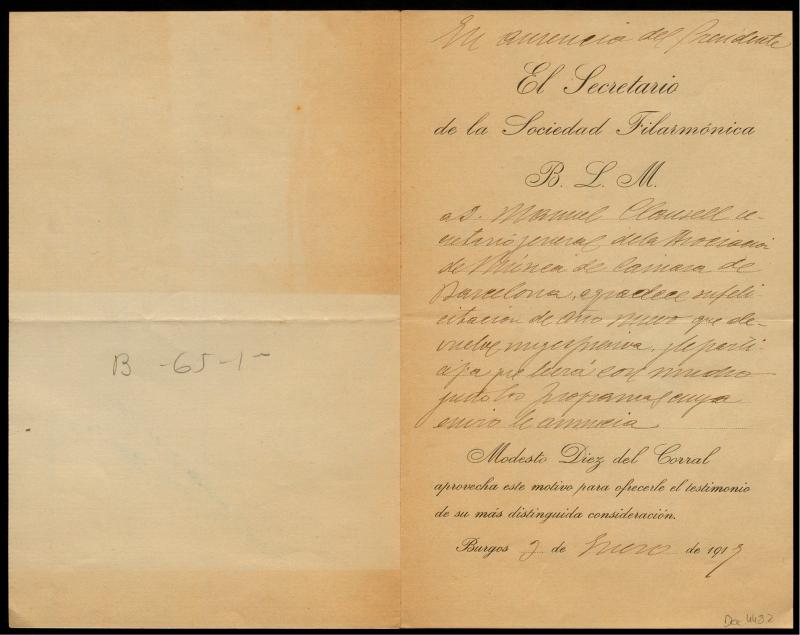 B - 65 - 1 -
En ausencia del Presidente
El Secretario
de la Sociedad Filarmónica
B. L. M.
a D. Manuel Clausell se-
cretario general de la Asociacion
de Música de Cámara de
Barcelona, agradece su feli-
citacion de año nuevo que de-
vuelve muy expresiva, y le parti-
cipa que leerá con mucho
gusto los programas cuyo
envio le anuncia
Modesto Diez del Corral
aprovecha este motivo para ofrecerle el testimonio
de su más distinguida consideración.
Burgos 2 de Enero de 191
Doc 4432